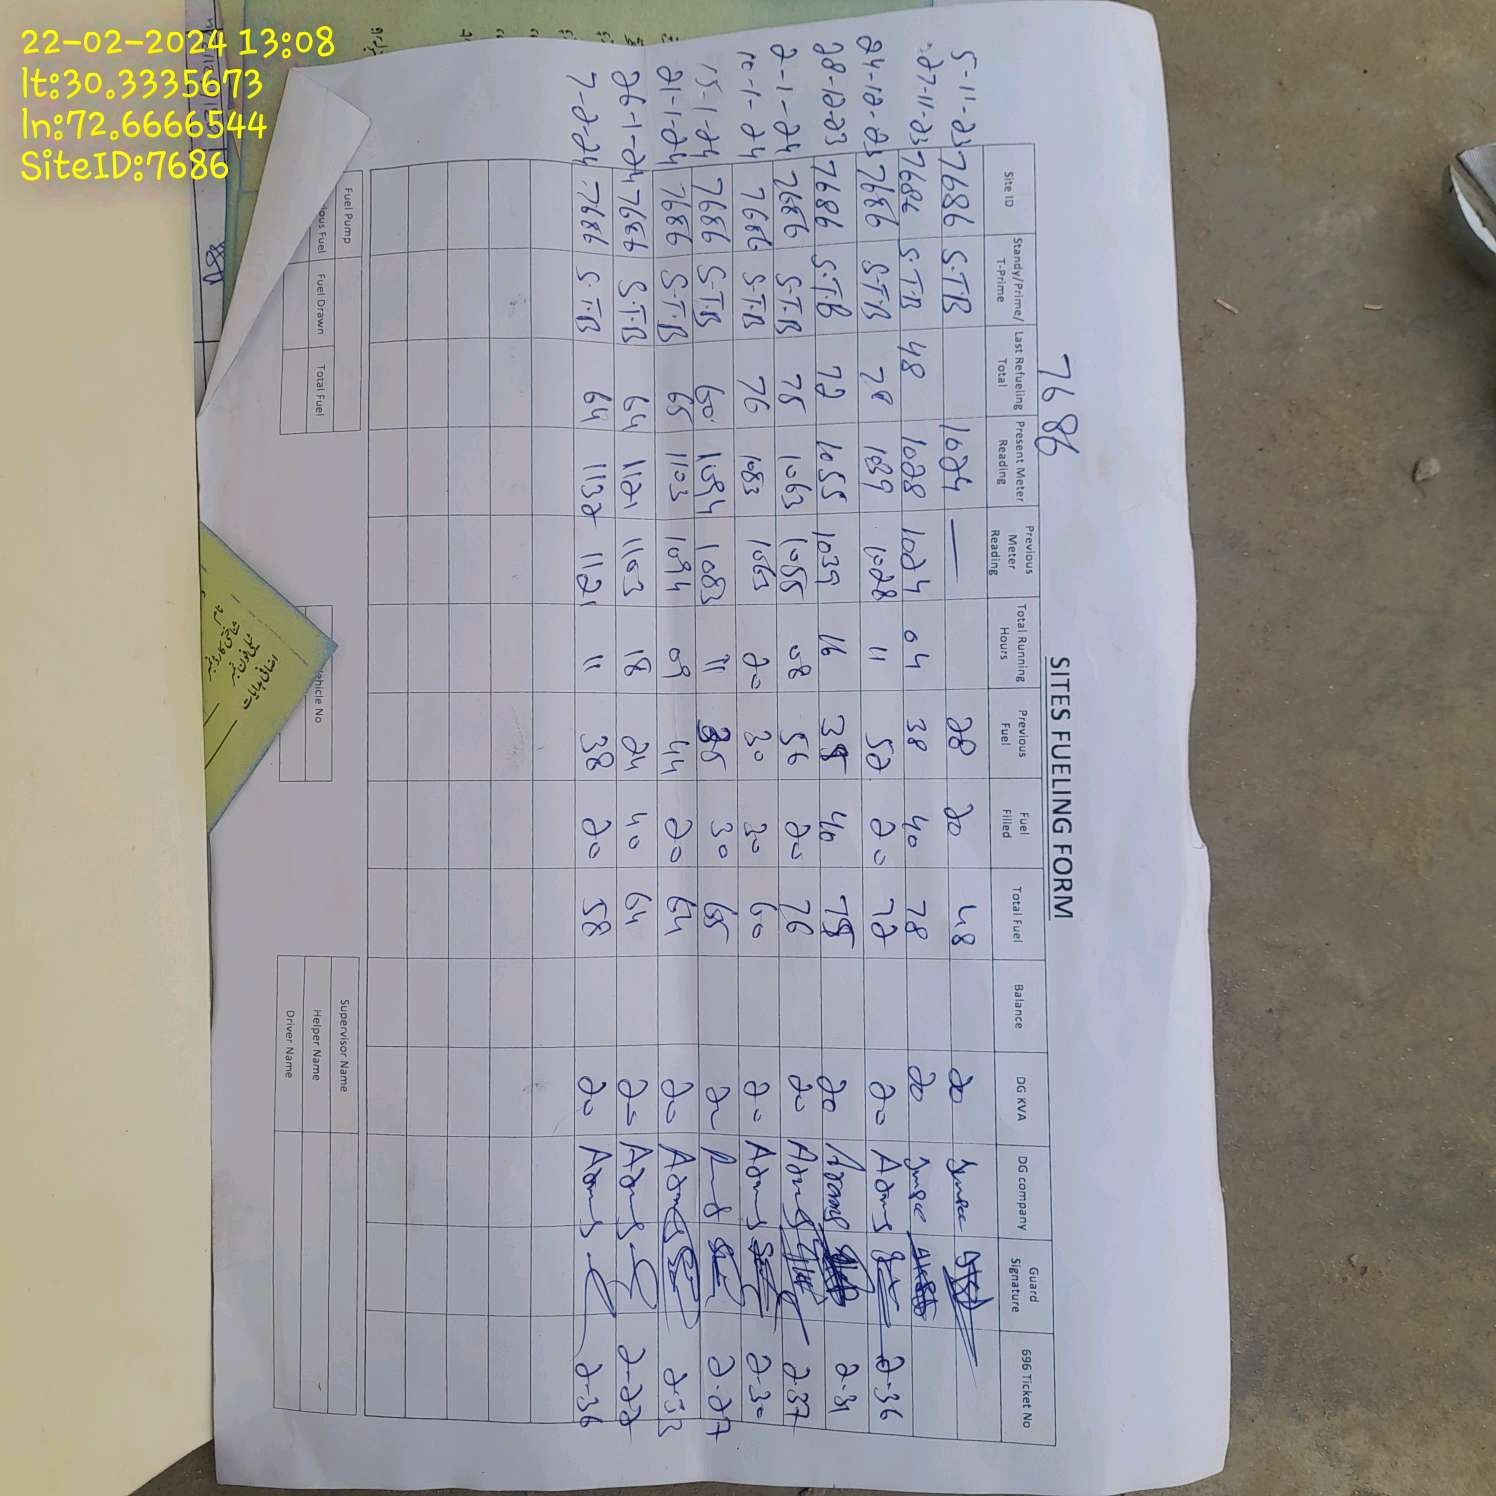 22-02-2024 13:08
lt:30.3335673
ln:72.6666544
SiteID:7686
7686
SITES FUELING FORM
Site ID Standy/Prime/ T-Prime Last Refueling Total Present Meter Reading Previous Meter Reading Total Running Hours Previous Fuel Fuel Filled Total Fuel Balance DG KVA DG company Guard Signature 696 Ticket No
5-11-23 7686 S.T.B 1024 — 28 20 48 20
27-11-23 7686 S.T.B 48 1028 1024 04 38 40 78 20
24-12-23 7686 S.T.B 78 1039 1028 11 52 20 72 20 2-36
28-12-23 7686 S.T.B 72 1055 1039 16 35 40 75 20 2-31
2-1-24 7686 S.T.B 75 1063 1055 08 56 20 76 20 2-37
10-1-24 7686 S.T.B 76 1083 1063 20 30 30 60 20 2-30
15-1-24 7686 S.T.B 60 1094 1083 11 35 30 65 20 2-27
21-1-24 7686 S.T.B 65 1103 1094 09 44 20 64 20 2-33
26-1-24 7686 S.T.B 64 1121 1103 18 24 40 64 20 2-22
7-2-24 7686 S.T.B 64 1132 1121 11 38 20 58 20 2-36
Fuel Pump
ious Fuel Fuel Drawn Total Fuel
ehicle No
Supervisor Name
Helper Name
Driver Name
نام
شناختی کارڈ نمبر
ٹیلی فون نمبر
اضافی ہدایات